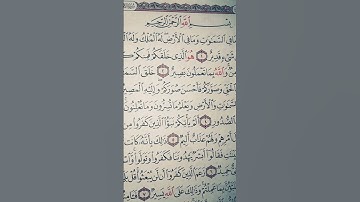 بِسْمِ اللَّهِ الرَّحْمَٰنِ الرَّحِيمِ
مَا فِي السَّمَٰوَٰتِ وَمَا فِي الْأَرْضِ لَهُ الْمُلْكُ وَلَهُ
شَيْءٍ قَدِيرٌ ١ هُوَ الَّذِي خَلَقَكُمْ فَمِنكُمْ
وَاللَّهُ بِمَا تَعْمَلُونَ بَصِيرٌ ٢ خَلَقَ
وَصَوَّرَكُمْ فَأَحْسَنَ صُوَرَكُمْ وَإِلَيْهِ الْمَصِيرُ
السَّمَٰوَٰتِ وَالْأَرْضِ وَيَعْلَمُ مَا تُسِرُّونَ وَمَا تُعْلِنُونَ
الصُّدُورِ ٤ أَلَمْ يَأْتِكُمْ نَبَؤُا الَّذِينَ كَفَرُوا مِن
أَمْرِهِمْ وَلَهُمْ عَذَابٌ أَلِيمٌ ٥ ذَٰلِكَ بِأَنَّهُ كَانَت
فَقَالُوا أَبَشَرٌ يَهْدُونَنَا فَكَفَرُوا وَتَوَلَّوا
حَمِيدٌ ٦ زَعَمَ الَّذِينَ كَفَرُوا أَن لَّن يُبْعَثُوا قُلْ
بِمَا عَمِلْتُمْ وَذَٰلِكَ عَلَى اللَّهِ يَسِيرٌ ٧